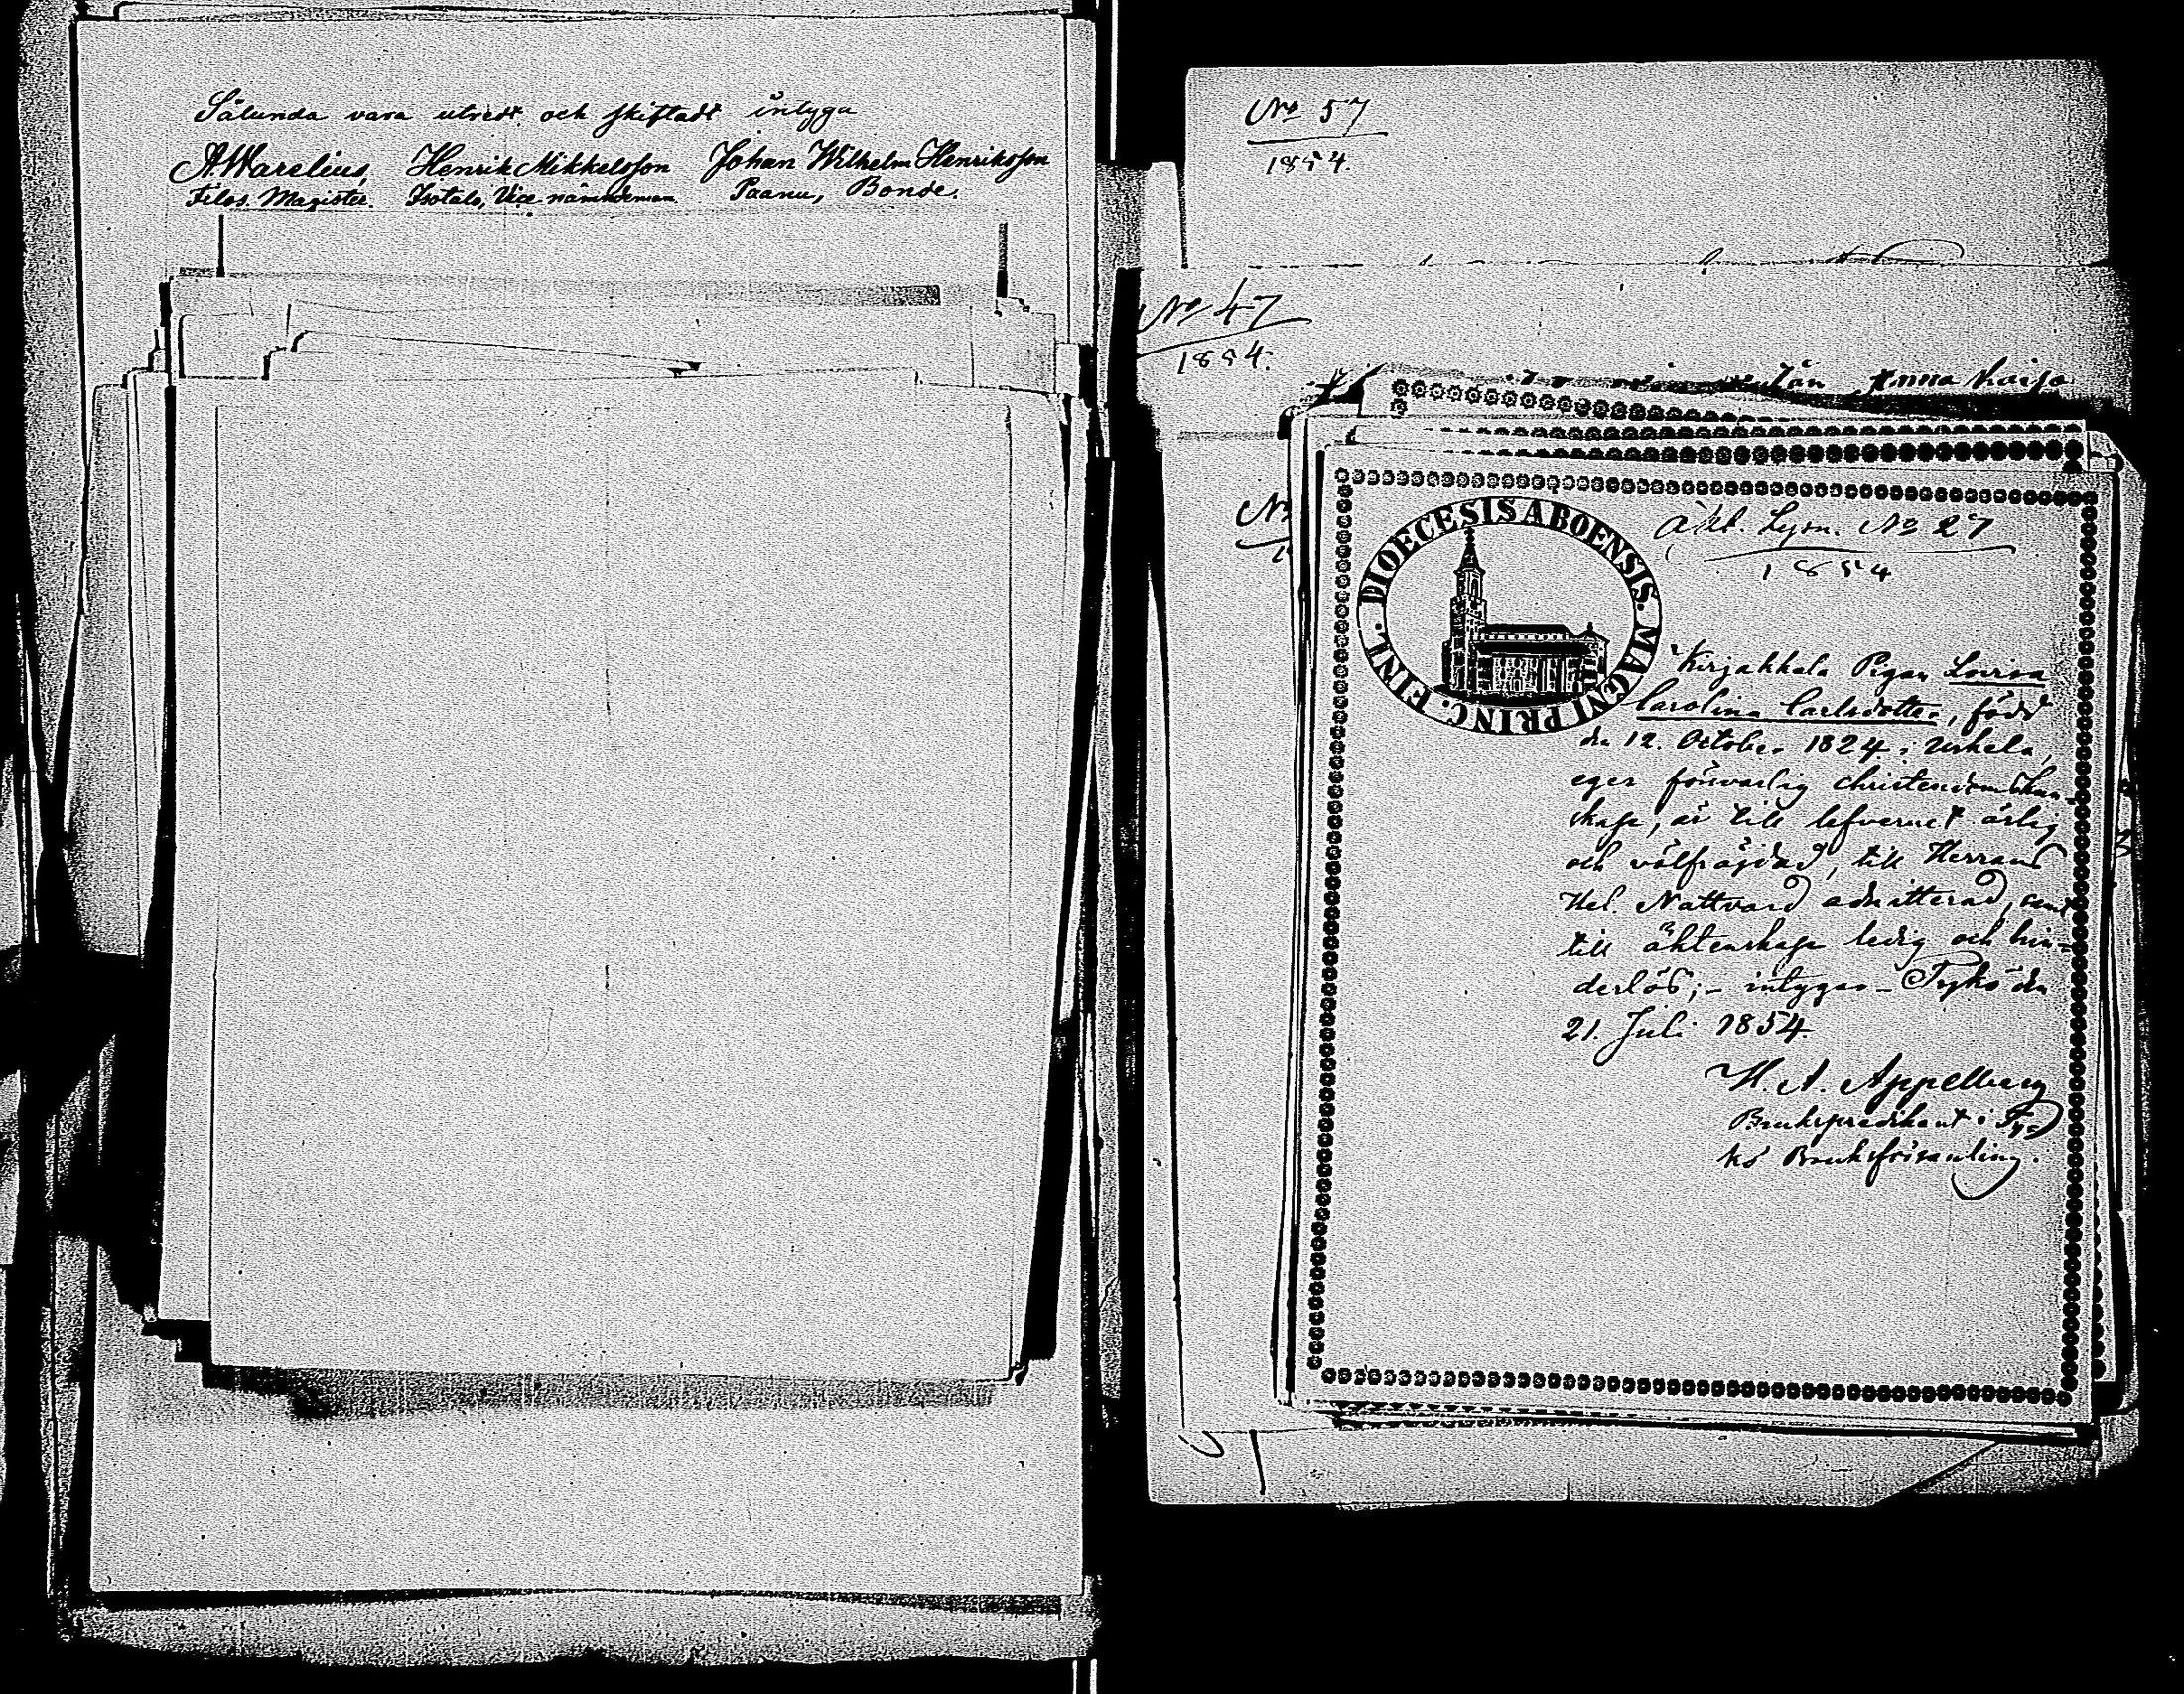 Sålunda vara utredt och skiftadt intyga
A. Warelius, Henrik Mikkelsson Johan Wilhelm Henriksson
Filos. Magister. Isotalo, Vice nämndeman. Paanu, Bonde.
No 57
1854.
No 47
1854.
Anna Kaisa
No
DIOECESIS ABOENSIS. MAGNI PRINC. FINL.
Äkt. Lysn. No 27
1854
Kirjakkala Pigan Lovisa
Carolina Carlsdotter, född
den 12. October 1824 i Uskela,
eger försvarlig christendomskun-
skap, är till lefvernet ärlig
och välfräjdad, till Herrans
Hel. Nattvard admitterad, samt
till äktenskap ledig och hin-
derlös; - intygas - Tykö den
21. Juli 1854.
H. A. Appelberg
Brukspredikant i Ty-
kö Bruksförsamling.